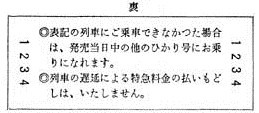 裏
◎表記の列車にご乗車できなかつた場合
は、発売当日中の他のひかり号にお乗
りになれます。
◎列車の遅延による特急料金の払いもど
しは、いたしません。
1234
1234